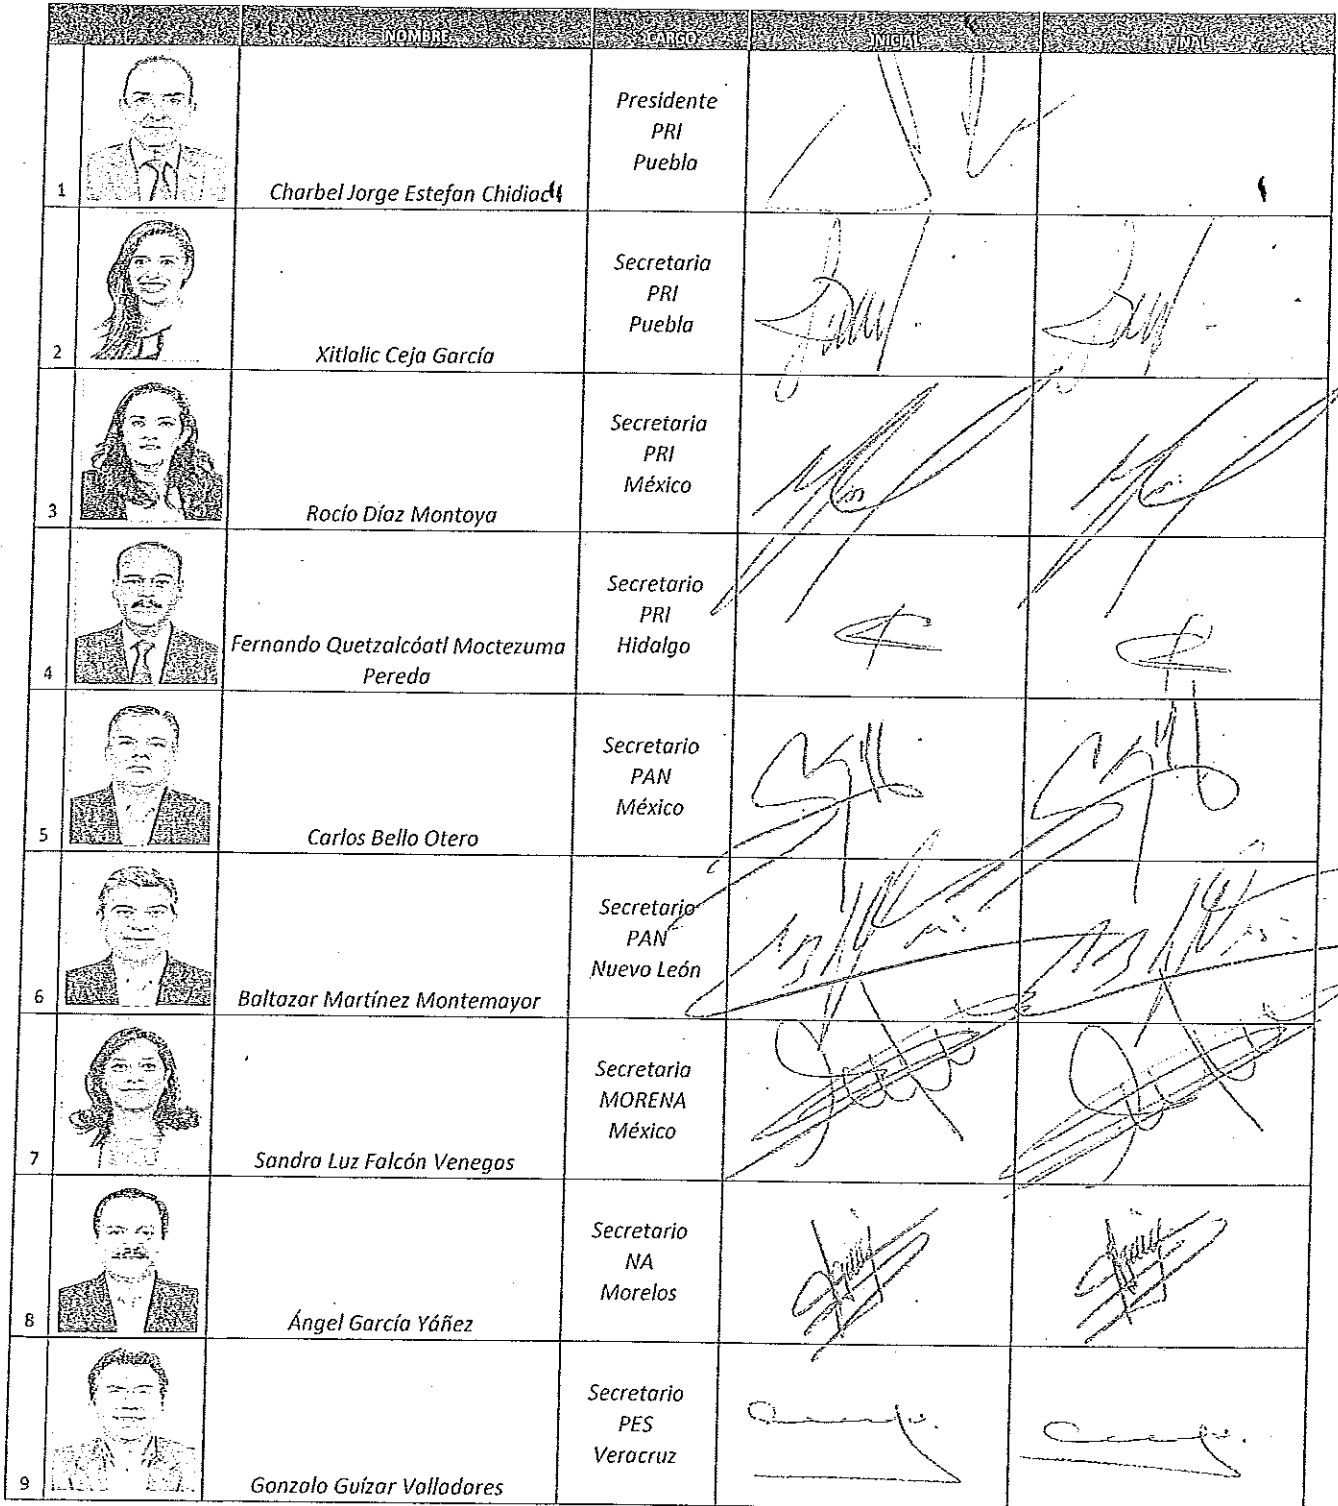 NOMBRE CARGO INICIAL FINAL
1 Charbel Jorge Estefan Chidiac Presidente
PRI
Puebla
2 Xitlalic Ceja García Secretaria
PRI
Puebla
3 Rocío Díaz Montoya Secretaria
PRI
México
4 Fernando Quetzalcóatl Moctezuma
Pereda Secretario
PRI
Hidalgo
5 Carlos Bello Otero Secretario
PAN
México
6 Baltazar Martínez Montemayor Secretario
PAN
Nuevo León
7 Sandra Luz Falcón Venegas Secretaria
MORENA
México
8 Ángel García Yáñez Secretario
NA
Morelos
9 Gonzalo Guízar Valladares Secretario
PES
Veracruz